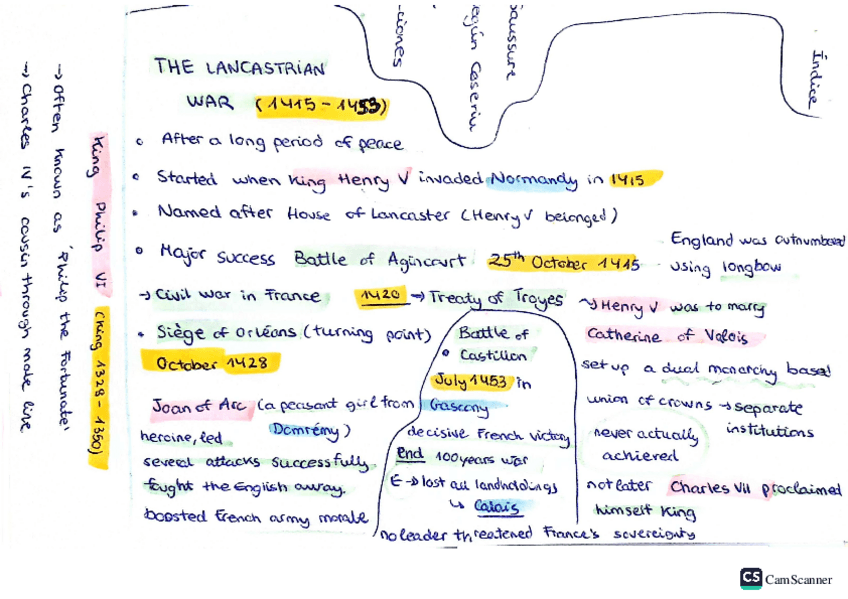 -ciones
egún Coseriu
Saussure
Índice
THE LANCASTRIAN
WAR (1415-1453)
After a long period of peace
Started when King Henry V invaded Normandy in 1415
Named after House of Lancaster (Henry V belonged)
Major success Battle of Agincourt 25th October 1415
England was outnumbered
using longbow
→ Civil war in France 1420 → Treaty of Troyes
Henry V was to marry
Catherine of Valois
set up a dual monarchy based
union of crowns → separate
institutions
never actually
achieved
not later Charles VII proclaimed
himself King
• Siège of Orléans (turning point)
October 1428
Joan of Arc (a peasant girl from
Domrémy)
heroine, led
several attacks successfully.
fought the English away.
boosted French army morale
Battle of
• Castillon
July 1453 in
Gascony
decisive French victory
end 100 years war
E → lost all landholdings
↳ Calais
no leader threatened France's sovereignty
King Philip VI (King 1328-1350)
→ Often known as 'Philip the Fortunate'
→ Charles IV's cousin through male line
CS CamScanner